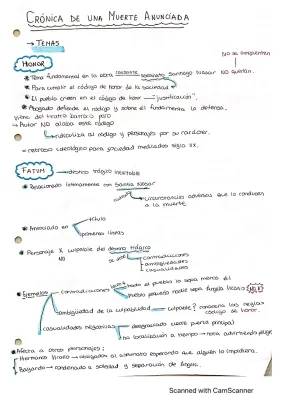 CRÓNICA DE UNA MUERTE ANUNCIADA
→ TEMAS
HONOR
No se arrepienten
* Tema fundamental en la obra constante asesinato Santiago Nasar NO querían.
* Para cumplir el código de honor de la sociedad
* El pueblo creen en el código de honor → "justificación".
* Abogado defiende el código y sobre él fundamenta la defensa.
viene del teatro barroco pero
→ Autor NO alaba este código
→ ridiculiza al código y personajes por su carácter.
= retroceso ideológico para sociedad mediados siglo XX.
FATUM → destino trágico inevitable
* Relacionado íntimamente con Santiago Nasar
circunstancias adversas que lo conducen
a la muerte
* Anunciado en
título
primeras líneas
* Personaje X culpable del destino trágico
NO
se debe
contradicciones
ambigüedades
casualidades
* Ejemplos
contradicciones
todo el pueblo lo sepa menos él
pueblo pequeño nadie sepa Ángela
ambigüedad de la culpabilidad → culpable? conocía las reglas
código de honor.
casualidades negativas
desgraciado cierre puerta principal
no localización a tiempo → nota advirtiendo peligro
* Afecta a otros personajes:
Hermanos Vicario → obligados al asesinato esperando que alguien lo impidiera.
Bayardo → condenado a soledad y separación de Ángela.
Scanned with CamScanner